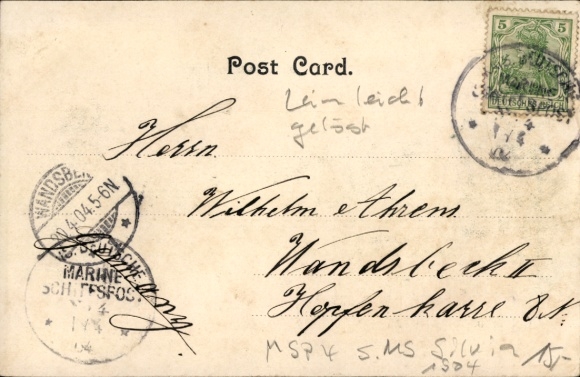 5
DEUTSCHES REICH
Post Card.
Leim leicht
gelöst
Herrn
Wilhelm Ahrens
Wandsbeck II
Hopfenkarre 8
Germany.
WANDSBEK
4.04.5-6N
DEUTSCHE
MARINE
SCHIFFSPOST
1/4
04
1/4
04
MSP 4 S.MS Silvia
1904
15,-